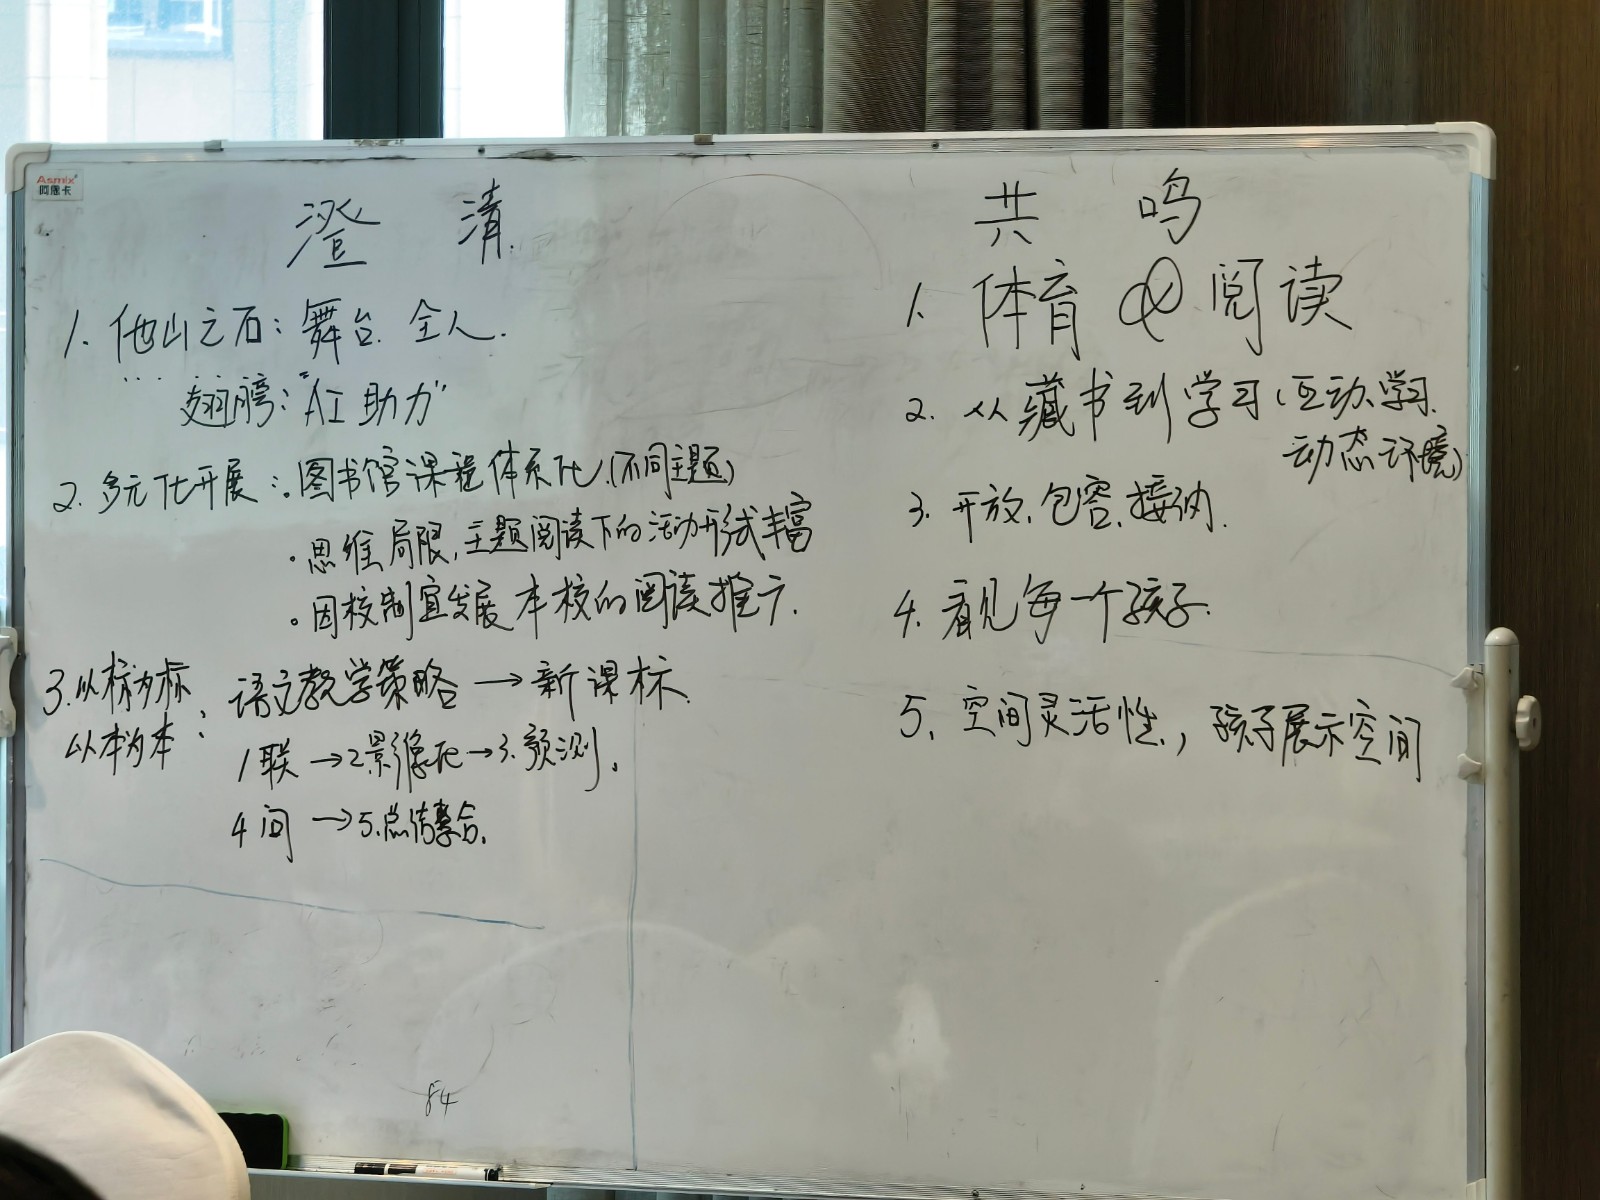 Asmix
阿思卡
澄 清
1. 他山之石：舞台. 全人.
翅膀："AI 助力"
2. 多元化开展：·图书馆课程体系化.(不同主题)
·思维局限,主题阅读下的活动形式丰富
·因校制宜发展本校的阅读推广.
3. 以标为标
以本为本：
语文教学策略→新课标.
1联→2影像化→3.预测.
4问→5.总结整合.
84
共 鸣
1. 体育 & 阅读
2. 从藏书到学习(互动、学习.
动态环境)
3. 开放、包容、接纳.
4. 看见每一个孩子.
5. 空间灵活性,孩子展示空间